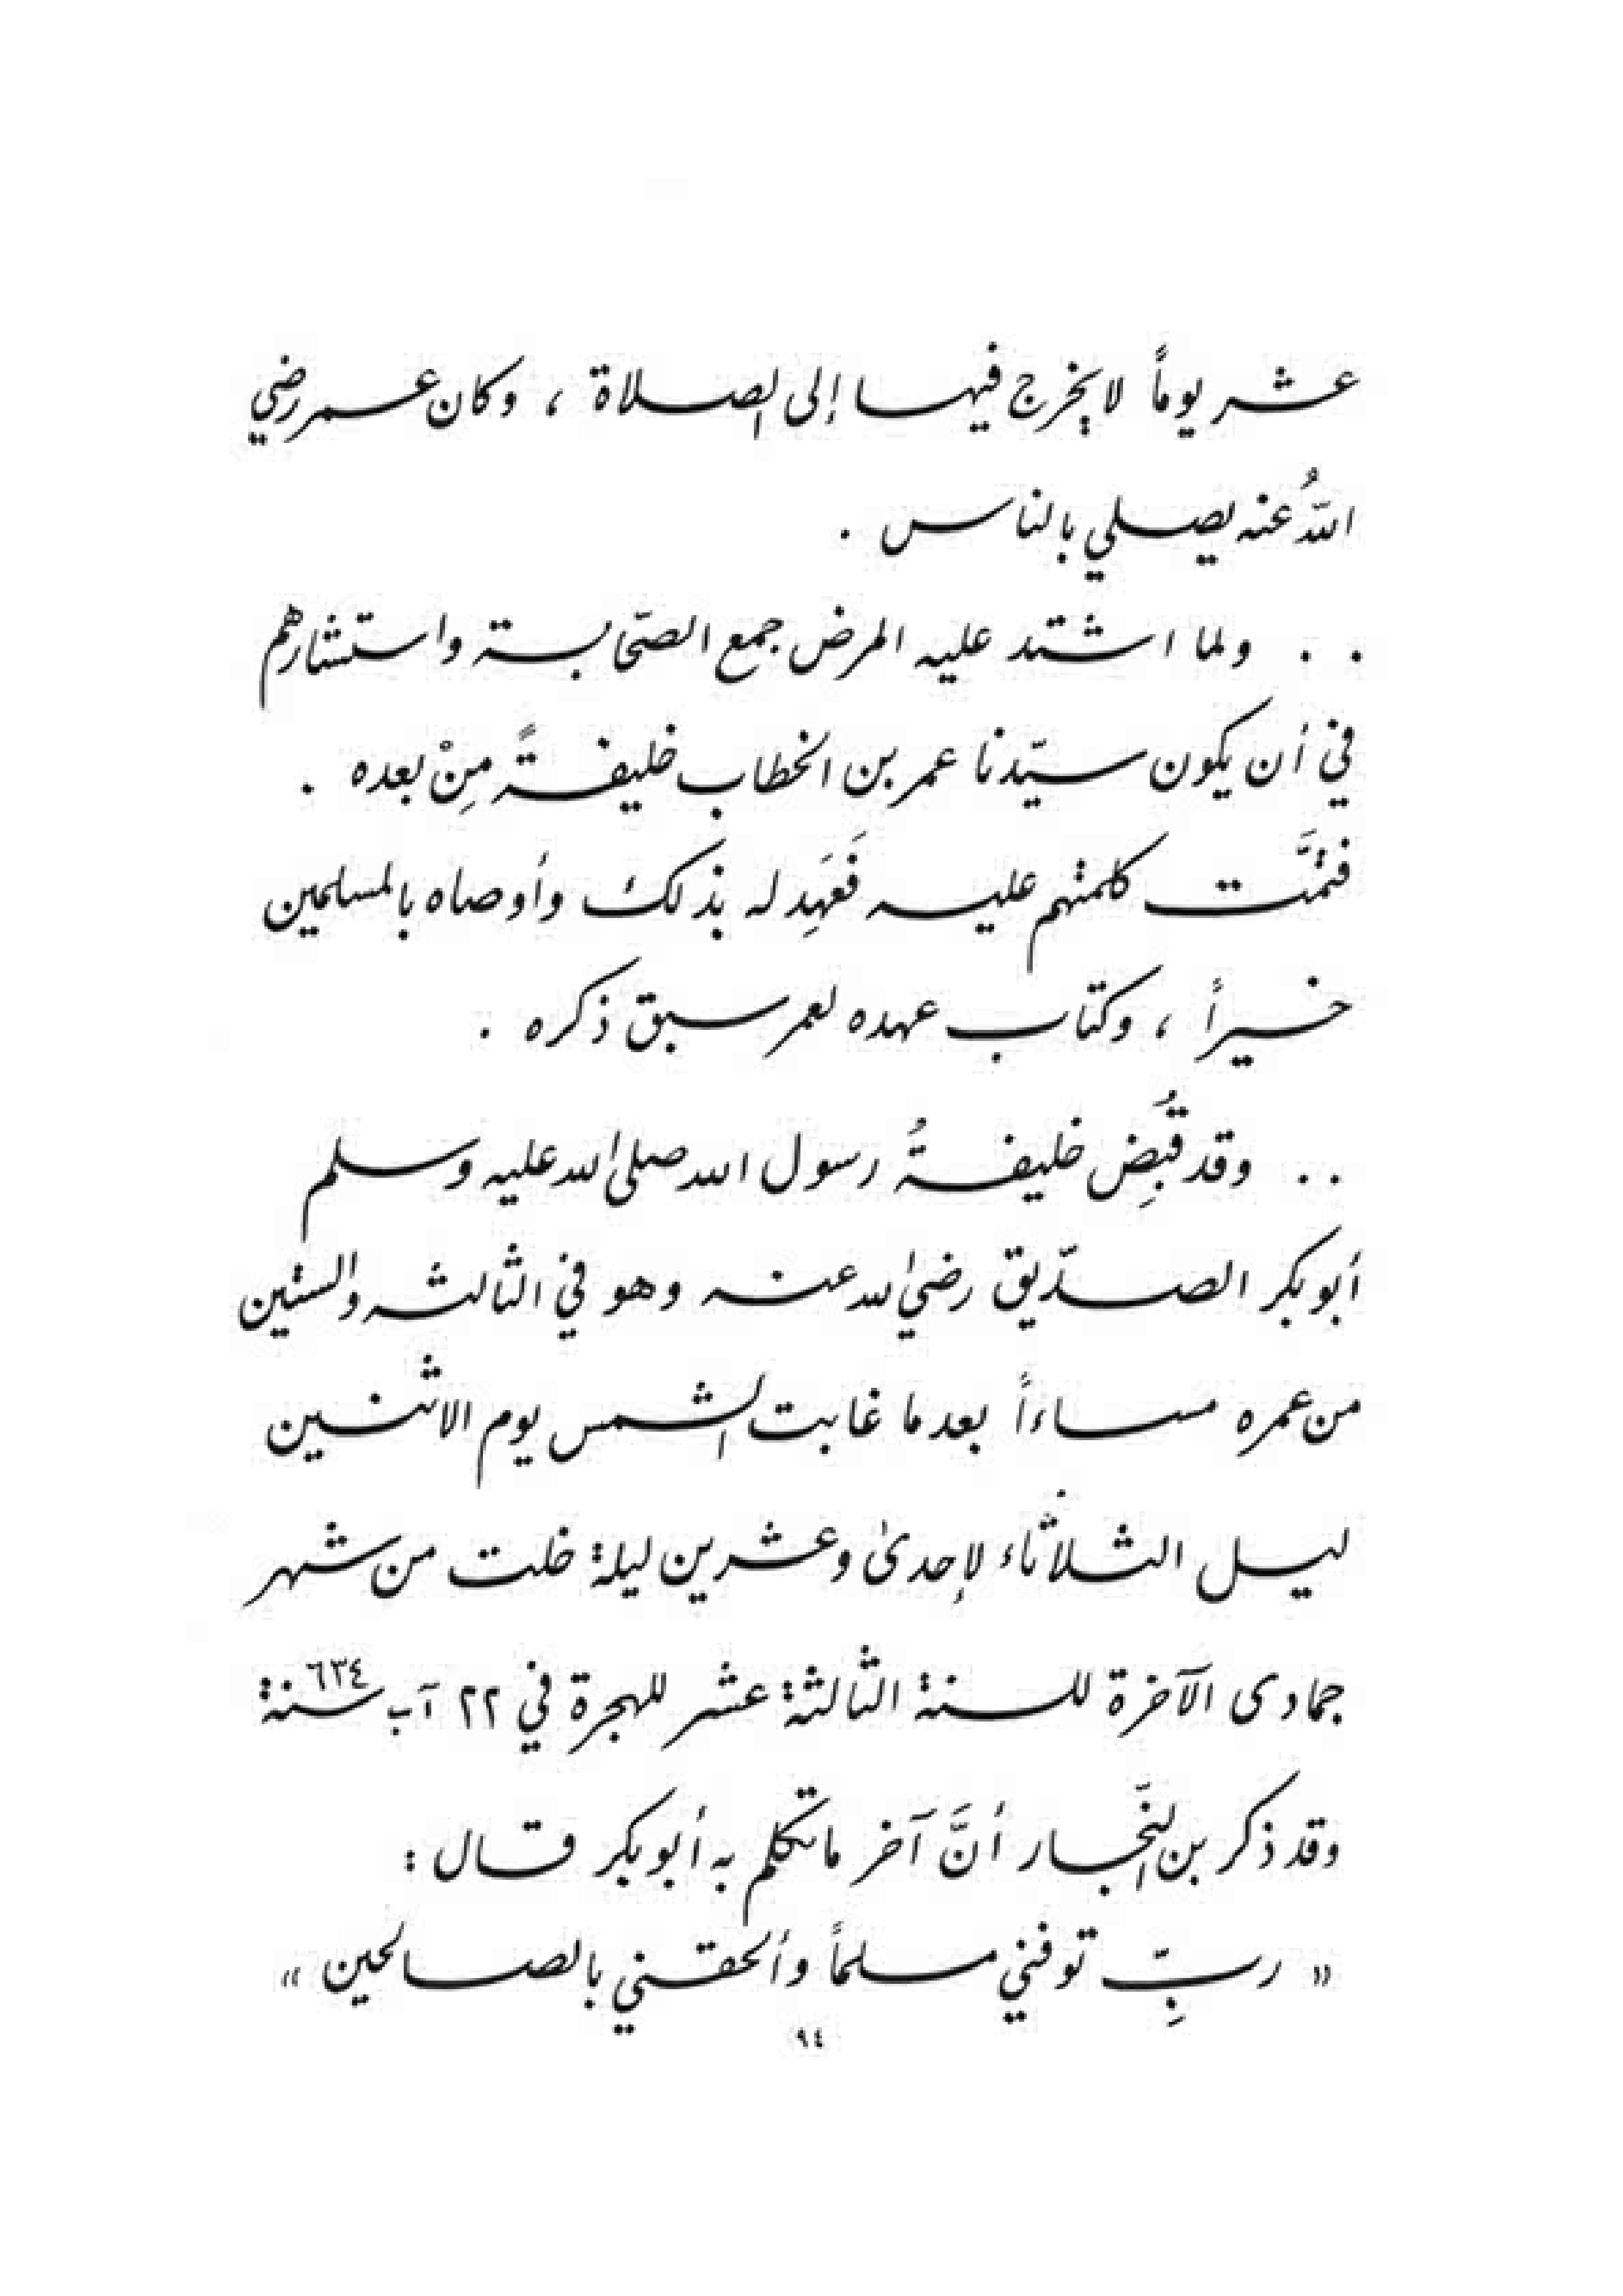 عشر يوماً لا يخرج فيها إلى الصلاة ، وكان عمر رضي
اللهُ عنه يصلي بالناس .
. . ولما اشتد عليه المرض جمع الصحّابة واستشارهم
في أن يكون سيّدنا عمر بن الخطاب خليفةً مِنْ بعده .
فتمَّت كلمتهم عليه فَعَهِد له بذلك وأوصاه بالمسلمين
خيراً ، وكتاب عهده لعمر سبق ذكره .
. . وقد قُبِض خليفةُ رسول الله صلى الله عليه وسلم
أبو بكر الصدّيق رضي الله عنه وهو في الثالثه والستين
من عمره مساءاً بعدما غابت الشمس يوم الاثنين
ليل الثلاثاء لإحدىٰ وعشرين ليلة خلت من شهر
جمادى الآخرة للسنة الثالثة عشر للهجرة في ٢٢ آب سنة ٦٣٤
وقد ذكر بن النّجار أنَّ آخر ما تكلم به أبو بكر قال :
« ربِّ توفني مسلماً وألحقني بالصالحين »
٩٤